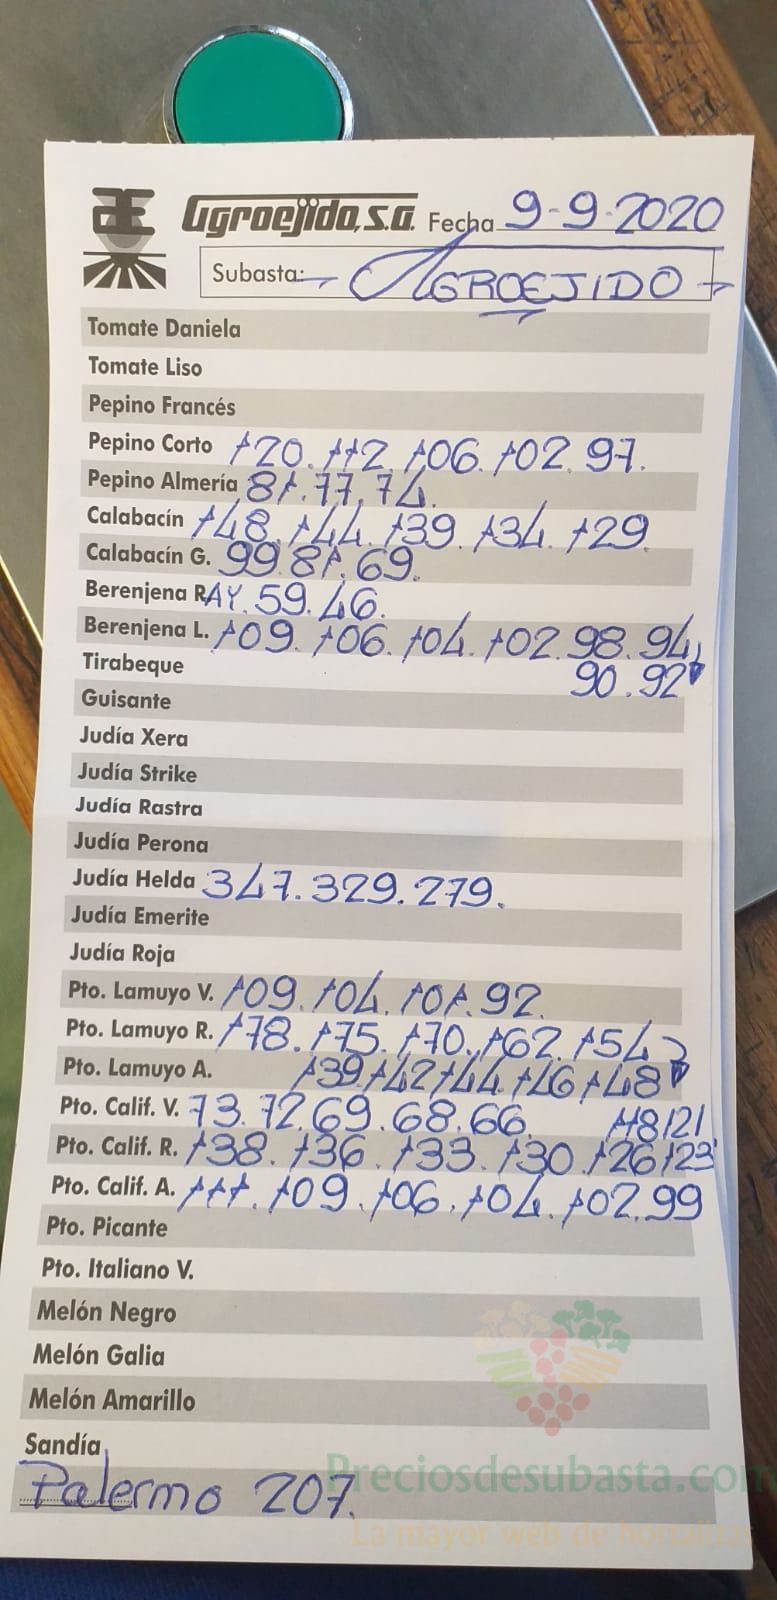 Æ Agroejido, S.A. Fecha 9-9-2020
Subasta: AGROEJIDO
Tomate Daniela
Tomate Liso
Pepino Francés
Pepino Corto 120. 112. 106. 102. 97.
Pepino Almería 81. 77. 74.
Calabacín 148. 144. 139. 134. 129.
Calabacín G. 99. 81. 69.
Berenjena RAY. 59. 46.
Berenjena L. 109. 106. 104. 102. 98. 94
Tirabeque 90. 92
Guisante
Judía Xera
Judía Strike
Judía Rastra
Judía Perona
Judía Helda 347. 329. 279.
Judía Emerite
Judía Roja
Pto. Lamuyo V. 109. 104. 101. 92.
Pto. Lamuyo R. 178. 175. 170. 162. 154
Pto. Lamuyo A. 139 142 144 146 148
Pto. Calif. V. 73. 72. 69. 68. 66. 118 121
Pto. Calif. R. 138. 136. 133. 130. 126 123
Pto. Calif. A. 111. 109. 106. 104. 102. 99
Pto. Picante
Pto. Italiano V.
Melón Negro
Melón Galia
Melón Amarillo
Sandía
Palermo 207.
Preciosdesubasta.com
La mayor web de hortalizas